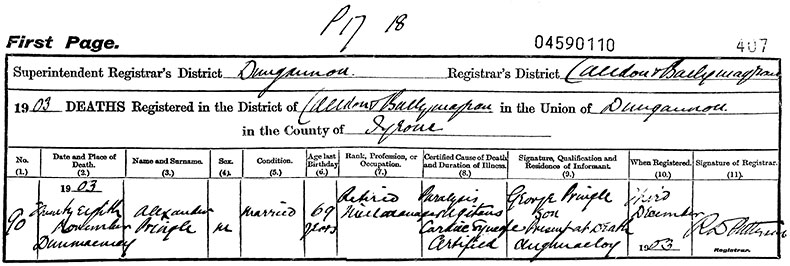 P17 18
First Page.
04590110 407
Superintendent Registrar's District Dungannon. Registrar's District Caledon & Ballymagran
1903 DEATHS Registered in the District of Caledon & Ballymagran in the Union of Dungannon
in the County of Tyrone
No. (1.) Date and Place of Death. (2.) Name and Surname. (3.) Sex. (4.) Condition. (5.) Age last Birthday (6.) Rank, Profession, or Occupation. (7.) Certified Cause of Death and Duration of Illness. (8.) Signature, Qualification and Residence of Informant. (9.) When Registered. (10.) Signature of Registrar. (11.)
1903 Retired Paralysis George Pringle Third
90 Twenty Eighth Alexander married 69 Agitans Son December
November Pringle m years Cardiac Syncope Present at Death
Certified Aughnacloy 1903
Registrar.